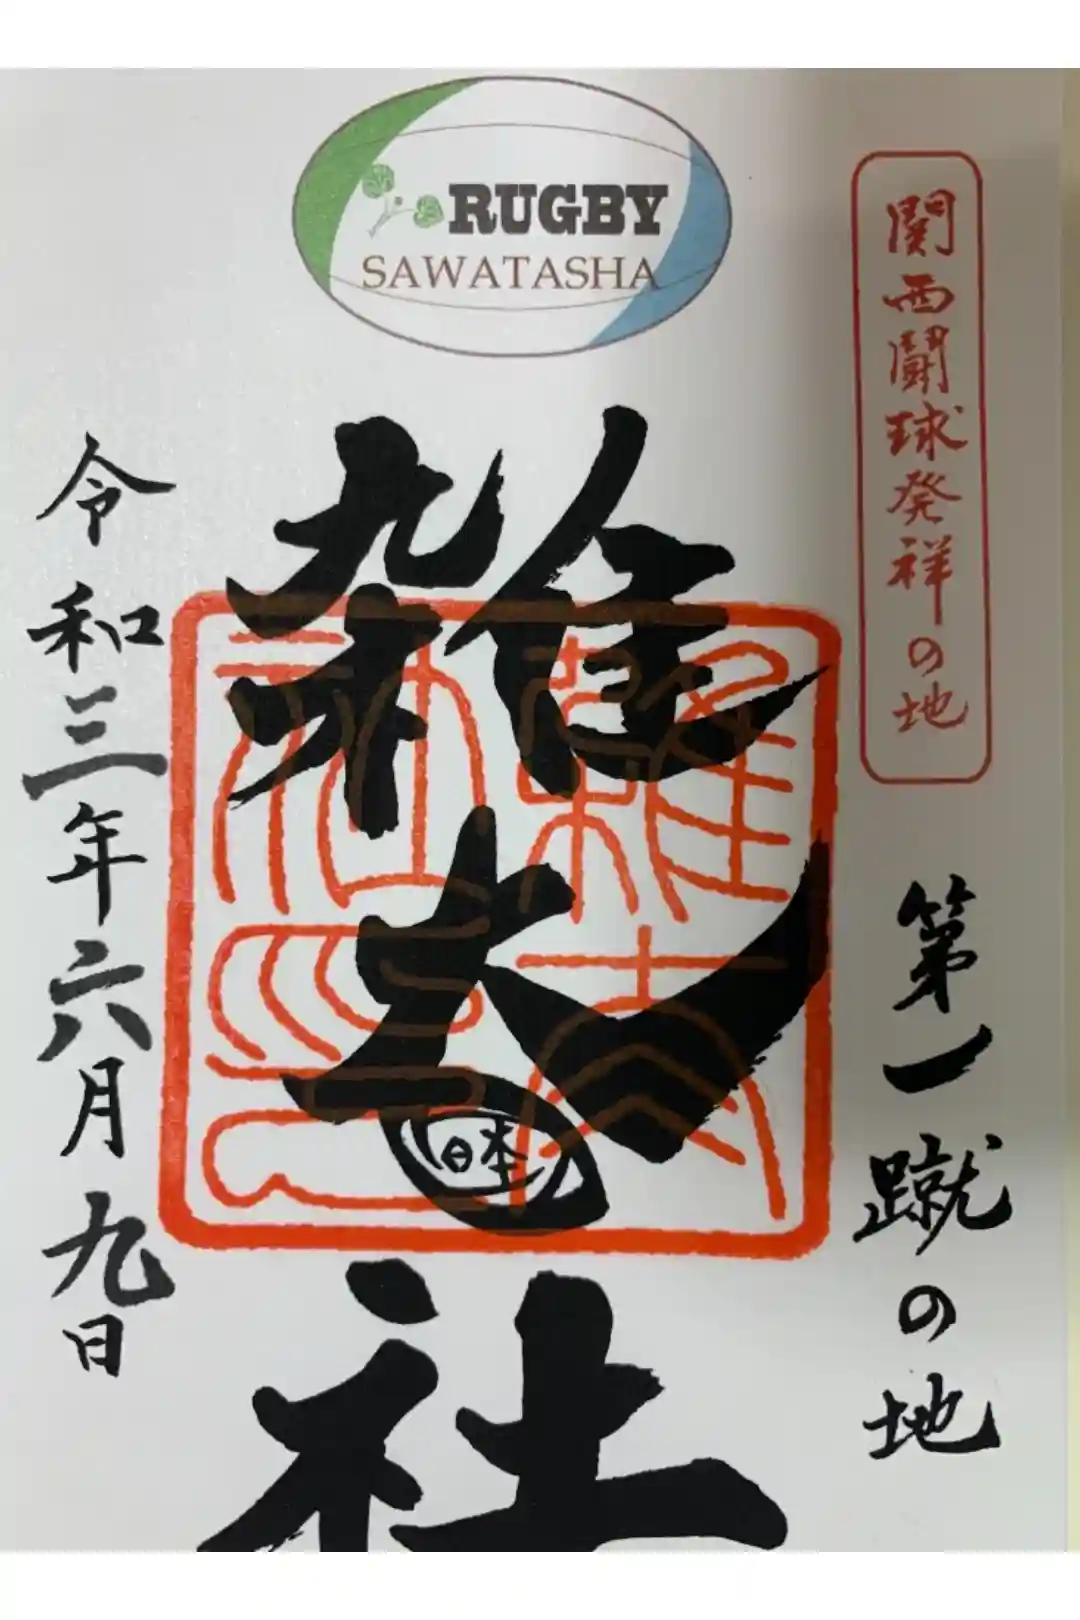 RUGBY
SAWATASHA
関西闘球発祥の地
第一蹴の地
雑太社
日本
令和三年六月九日